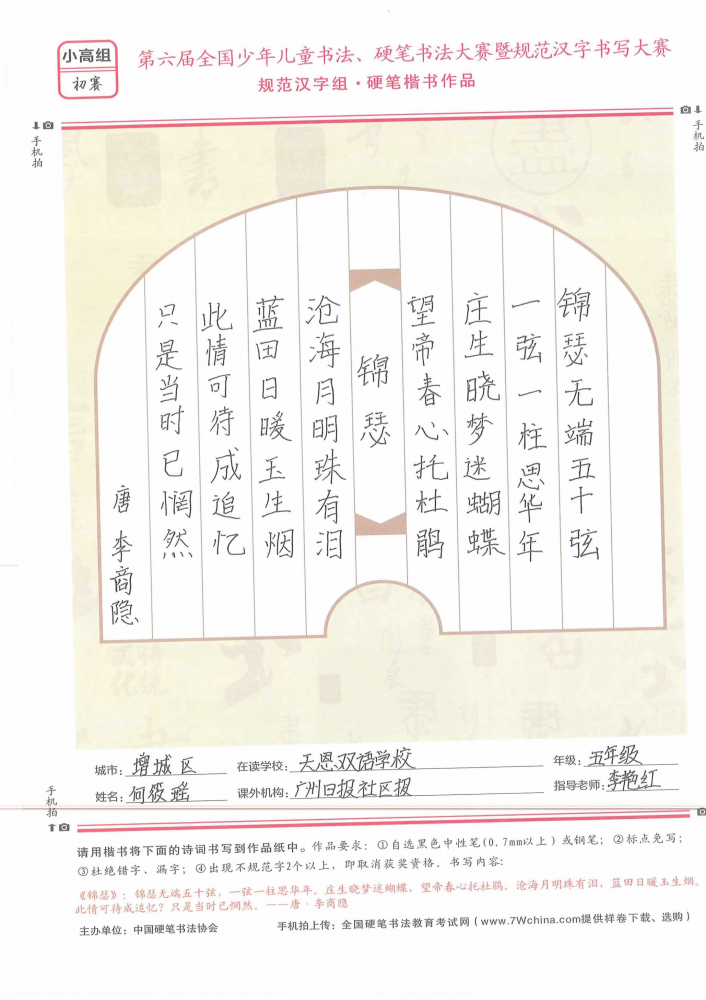 小高组
初赛
第六届全国少年儿童书法、硬笔书法大赛暨规范汉字书写大赛
规范汉字组·硬笔楷书作品
手机拍
手机拍
锦瑟无端五十弦
一弦一柱思华年
庄生晓梦迷蝴蝶
望帝春心托杜鹃
锦瑟
沧海月明珠有泪
蓝田日暖玉生烟
此情可待成追忆
只是当时已惘然
唐 李商隐
城市：增城区 在读学校：天恩双语学校 年级：五年级
姓名：何筱瑶 课外机构：广州日报社区报 指导老师：李艳红
手机拍
请用楷书将下面的诗词书写到作品纸中。作品要求：①自选黑色中性笔(0.7mm以上)或钢笔；②标点免写；
③杜绝错字、漏字；④出现不规范字2个以上，即取消获奖资格。书写内容:
《锦瑟》：锦瑟无端五十弦，一弦一柱思华年。庄生晓梦迷蝴蝶，望帝春心托杜鹃。沧海月明珠有泪，蓝田日暖玉生烟。
此情可待成追忆？只是当时已惘然。——唐·李商隐
主办单位：中国硬笔书法协会 手机拍上传：全国硬笔书法教育考试网（www.7Wchina.com提供样卷下载、选购）